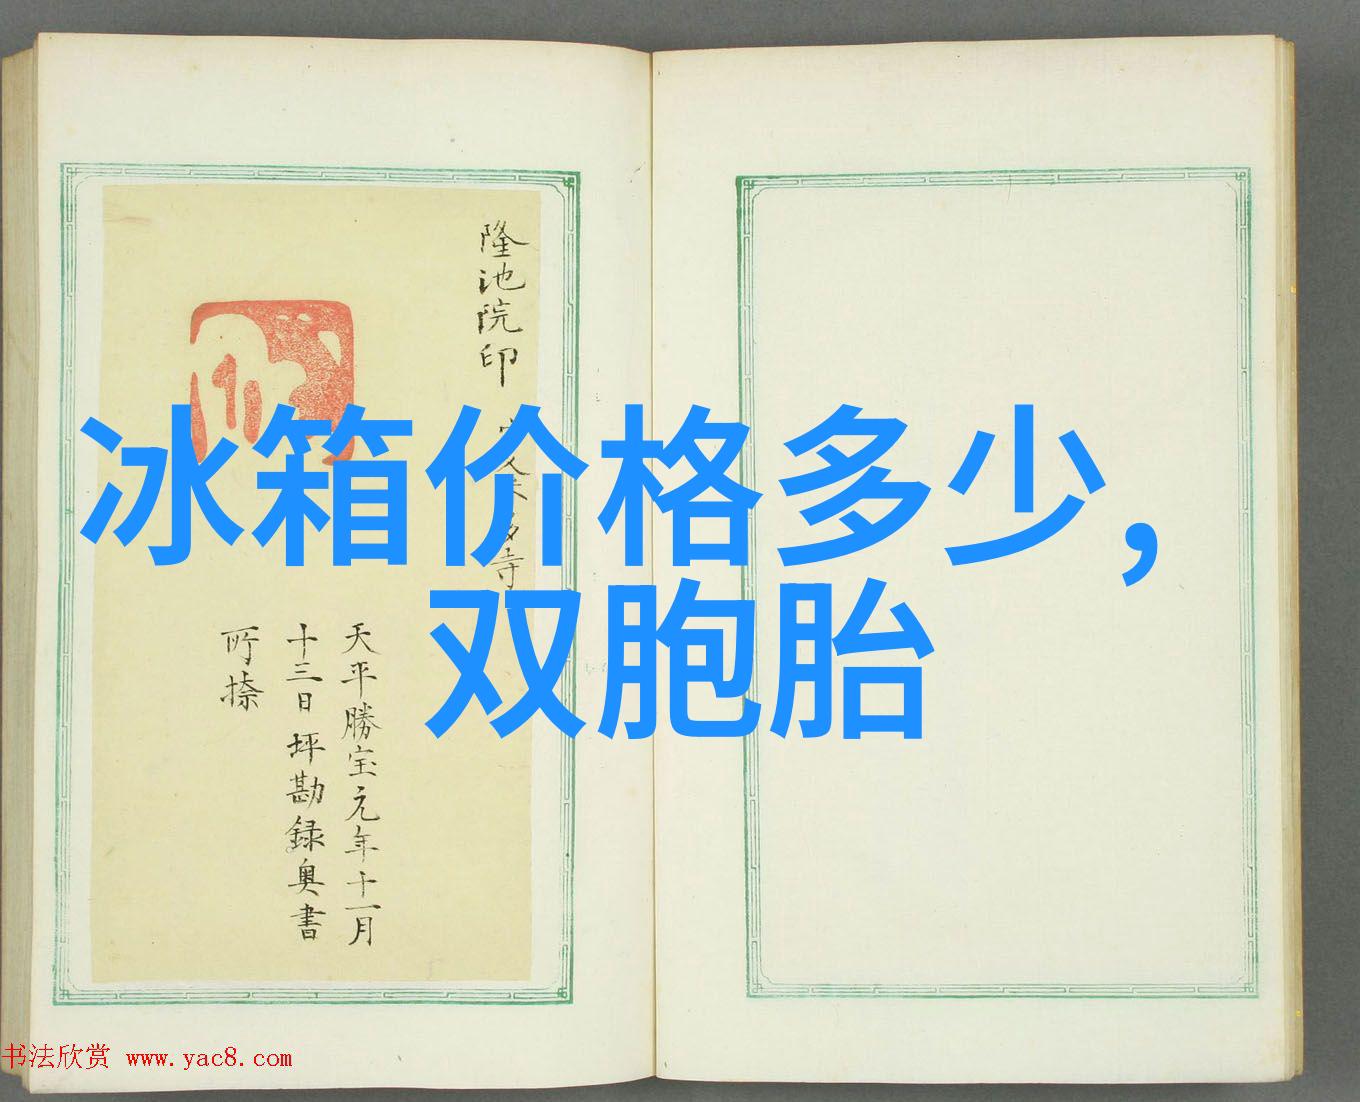 冰箱价格多少,
双胞胎
隆池院印
寺
天平勝宝元年十一月
十三日坪勘録奥書
所捺
书法欣赏 www.yac8.com